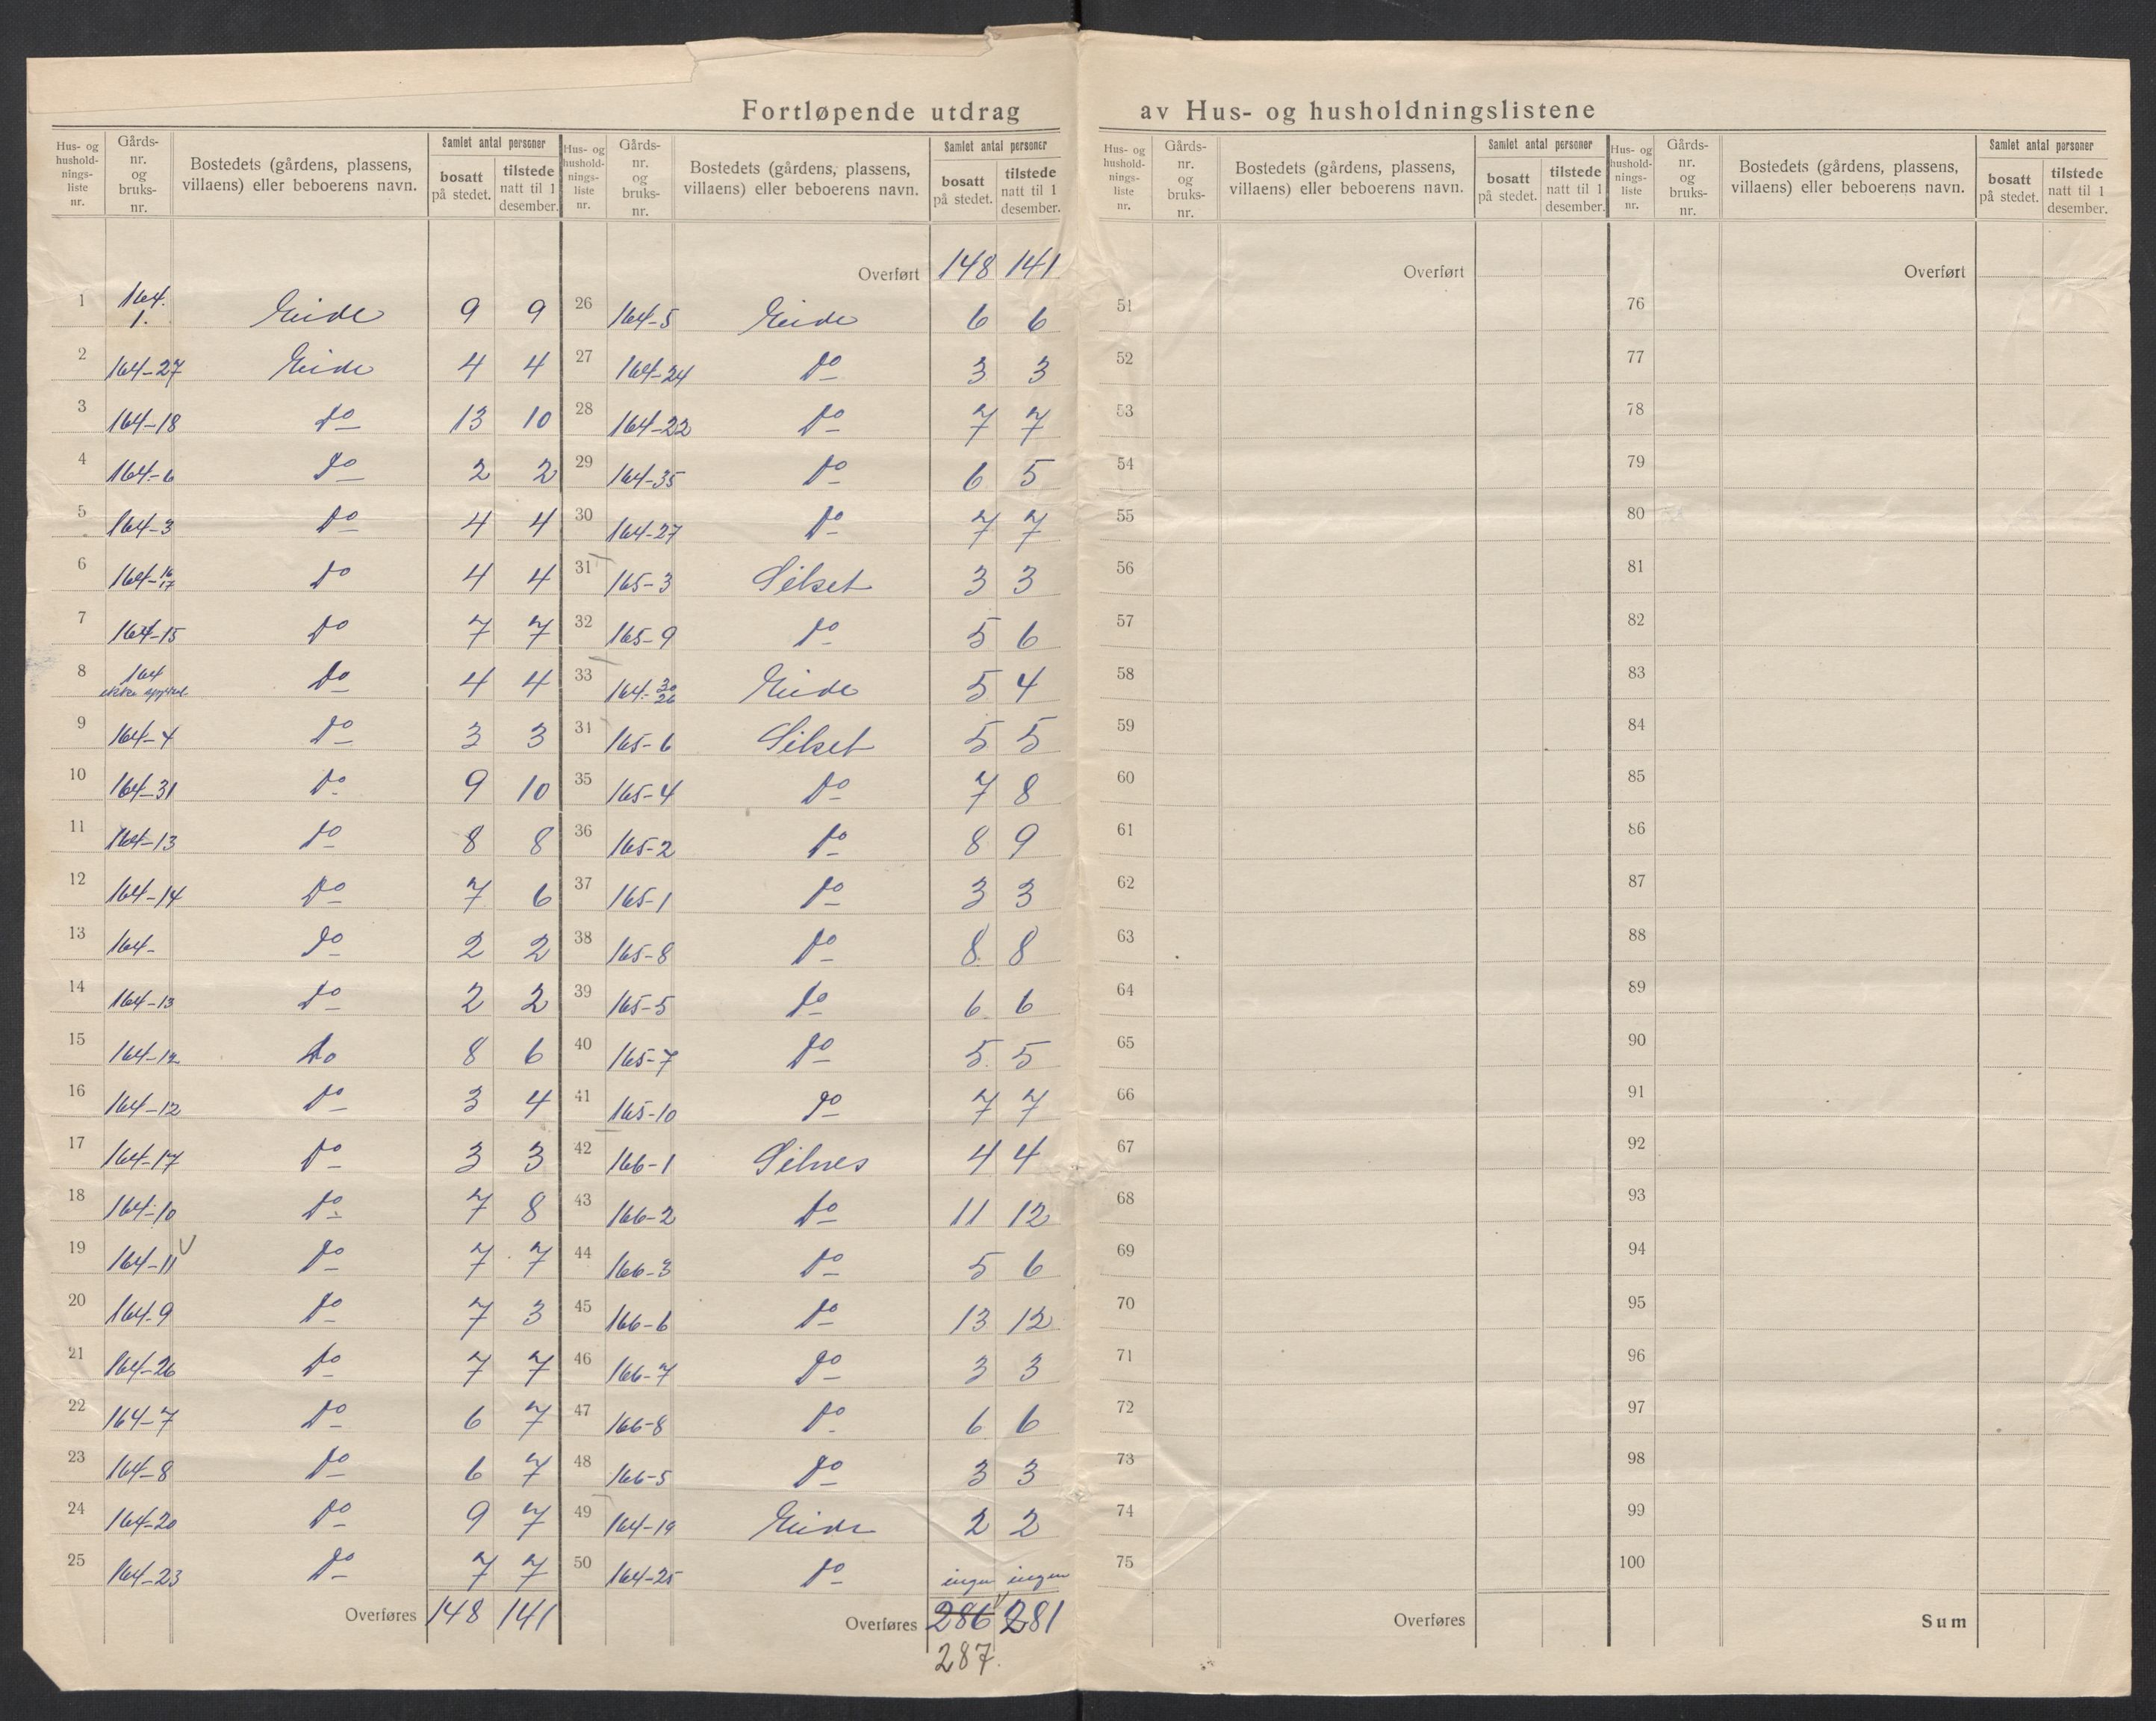 Fortløpende utdrag av Hus- og husholdningslistene
Hus- og hushold- nings- liste nr. | Gårds- nr. og bruks- nr. | Bostedets (gårdens, plassens, villaens) eller beboerens navn. | Samlet antal personer | bosatt på stedet. | tilstede natt til 1 desember.
1 164. 1. Eide 9 9
2 164-27 Eide 4 4
3 164-18 do 13 10
4 164-6 do 2 2
5 164-3 do 4 4
6 164-16 17 do 4 4
7 164-15 do 7 7
8 164 ikke do 4 4
9 164-4 do 3 3
10 164-31 do 9 10
11 164-13 do 8 8
12 164-14 do 7 6
13 164- do 2 2
14 164-13 do 2 2
15 164-12 do 8 6
16 164-12 do 3 4
17 164-17 do 3 3
18 164-10 do 7 8
19 164-11 do 7 7
20 164-9 do 7 3
21 164-26 do 7 7
22 164-7 do 6 7
23 164-8 do 6 7
24 164-20 do 9 7
25 164-23 do 7 7
Overføres 148 141
Hus- og hushold- nings- liste nr. | Gårds- nr. og bruks- nr. | Bostedets (gårdens, plassens, villaens) eller beboerens navn. | Samlet antal personer | bosatt på stedet. | tilstede natt til 1 desember.
Overført 148 141
26 164-5 Eide 6 6
27 164-24 do 3 3
28 164-22 do 7 7
29 164-35 do 6 5
30 164-27 do 7 7
31 165-3 Silset 3 3
32 165-9 do 5 6
33 164-30 26 Eide 5 4
31 165-6 Silset 5 5
35 165-4 do 7 8
36 165-2 do 8 9
37 165-1 do 3 3
38 165-8 do 8 8
39 165-5 do 6 6
40 165-7 do 5 5
41 165-10 do 7 7
42 166-1 Silnes 4 4
43 166-2 do 11 12
44 166-3 do 5 6
45 166-6 do 13 12
46 166-7 do 3 3
47 166-8 do 6 6
48 166-5 do 3 3
49 164-19 Eide 2 2
50 164-25 do ingen ingen
Overføres 286 281
287.
Hus- og hushold- nings- liste nr. | Gårds- nr. og bruks- nr. | Bostedets (gårdens, plassens, villaens) eller beboerens navn. | Samlet antal personer | bosatt på stedet. | tilstede natt til 1 desember.
Overført
51
52
53
54
55
56
57
58
59
60
61
62
63
64
65
66
67
68
69
70
71
72
73
74
75
Overføres
Hus- og hushold- nings- liste nr. | Gårds- nr. og bruks- nr. | Bostedets (gårdens, plassens, villaens) eller beboerens navn. | Samlet antal personer | bosatt på stedet. | tilstede natt til 1 desember.
Overført
76
77
78
79
80
81
82
83
84
85
86
87
88
89
90
91
92
93
94
95
96
97
98
99
100
Sum